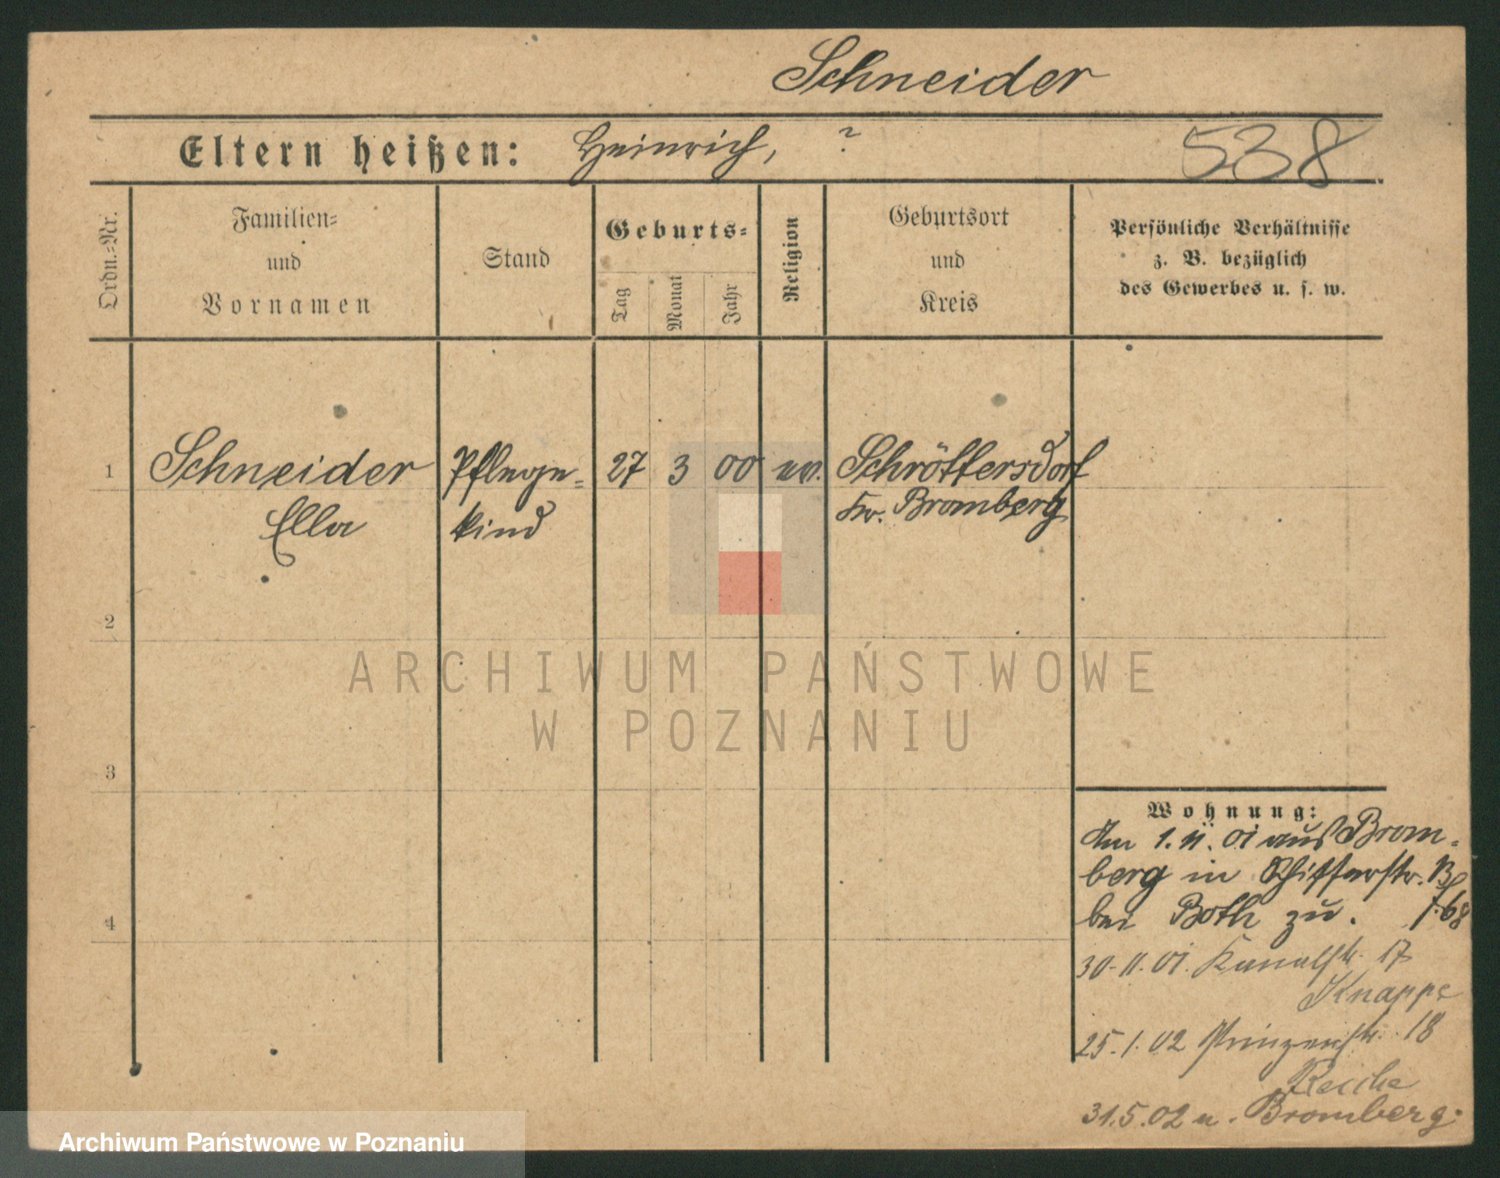 Schneider
Eltern heißen: Heinrich, ?
538
Ordn.=Nr.
Familien=
und
Vornamen
Stand
Geburts=
Tag
Monat
Jahr
Religion
Geburtsort
und
Kreis
Persönliche Verhältnisse
z. B. bezüglich
des Gewerbes u. s. w.
1 Schneider Pflege= 27 3 00 ev. Schröttersdorf
Ella kind Kr. Bromberg
2
3
4
Wohnung:
Am 1.11.01 aus Brom-
berg in
bei Both zu.
30.11.01. Kanalstr. 17
Knappe
25.1.02 Prinzenstr. 18
Reiche
31.5.02 n. Bromberg.
ARCHIWUM PAŃSTWOWE
W POZNANIU
Archiwum Państwowe w Poznaniu